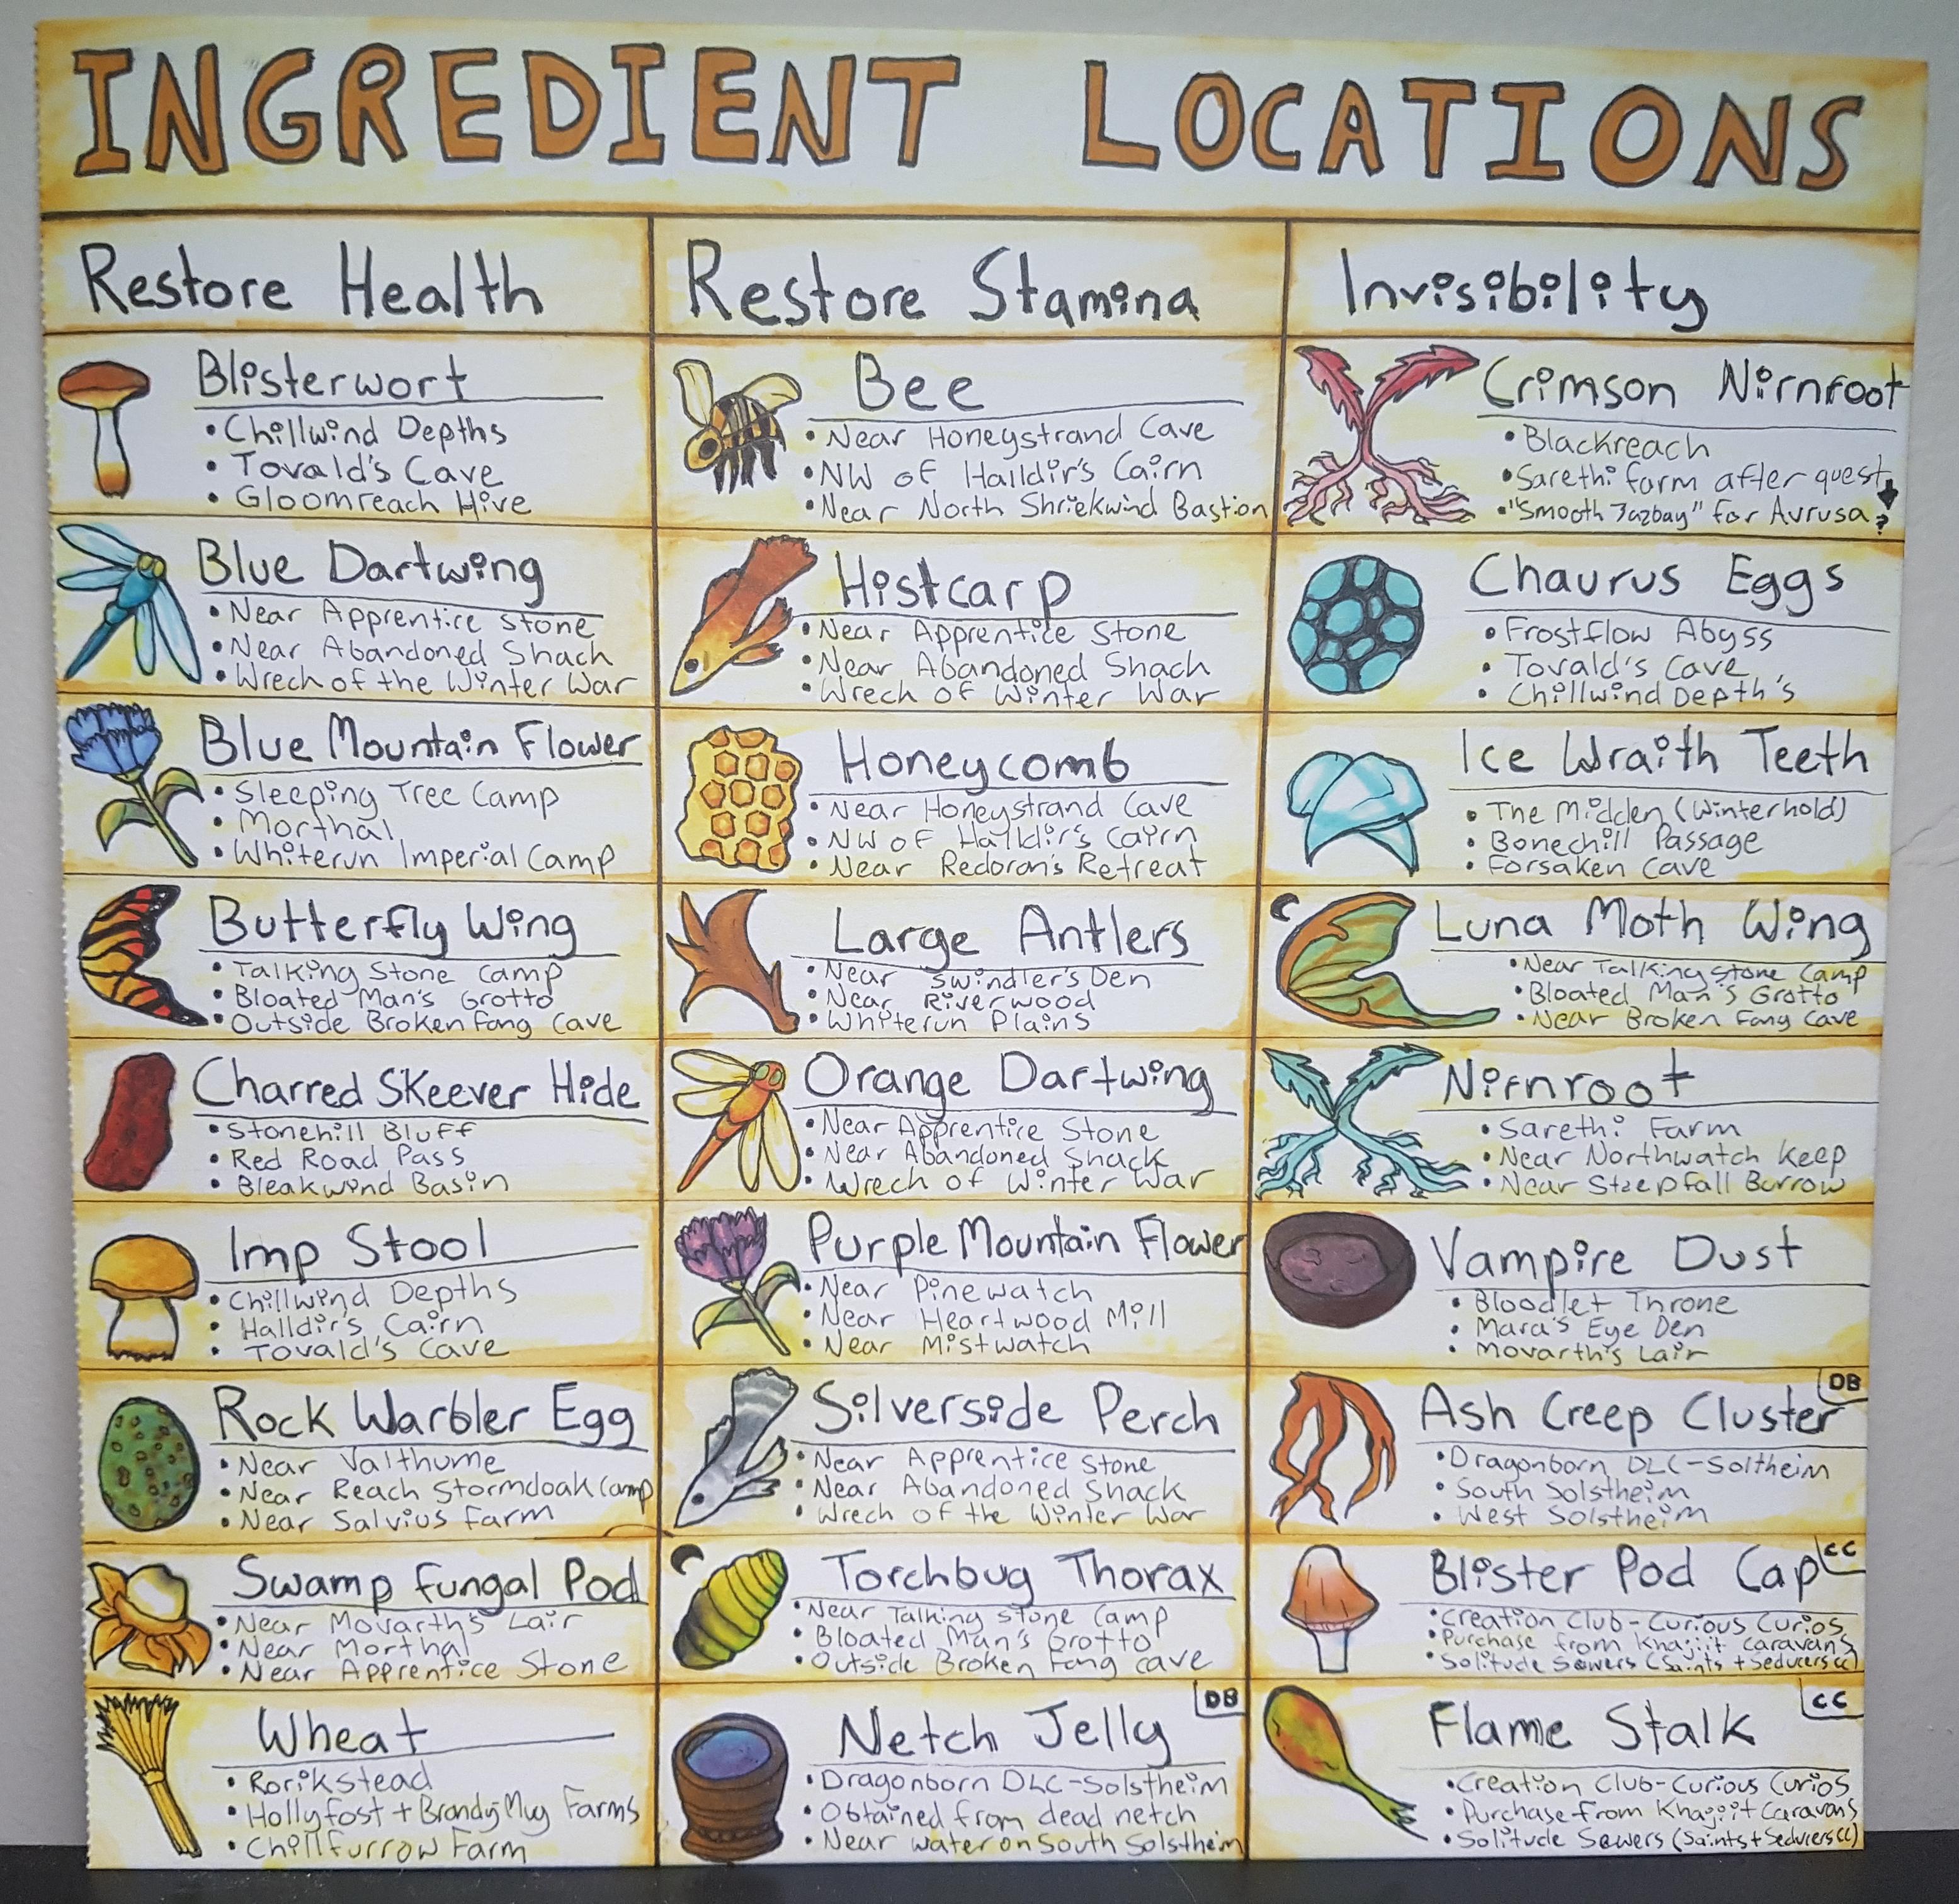 INGREDIENT LOCATIONS
Restore Health
Blisterwort
• Chillwind Depths
• Tovald's Cave
• Gloomreach Hive
Blue Dartwing
• Near Apprentice Stone
• Near Abandoned Shack
• Wrech of the Winter War
Blue Mountain Flower
• Sleeping Tree Camp
• Morthal
• Whiterun Imperial Camp
Butterfly Wing
• Talking Stone Camp
• Bloated Man's Grotto
• Outside Broken Fang Cave
Charred Skeever Hide
• Stonehill Bluff
• Red Road Pass
• Bleakwind Basin
Imp Stool
• Chillwind Depths
• Halldir's Cairn
• Tovald's Cave
Rock Warbler Egg
• Near Valthume
• Near Reach Stormcloak Camp
• Near Salvius Farm
Swamp Fungal Pod
• Near Movarth's Lair
• Near Morthal
• Near Apprentice Stone
Wheat
• Rorikstead
• Hollyfost + Brandy-Mug Farms
• Chillfurrow Farm
Restore Stamina
Bee
• Near Honeystrand Cave
• NW of Halldir's Cairn
• Near North Shriekwind Bastion
Histcarp
• Near Apprentice Stone
• Near Abandoned Shack
• Wrech of Winter War
Honeycomb
• Near Honeystrand Cave
• NW of Halldir's Cairn
• Near Redoran's Retreat
Large Antlers
• Near Swindler's Den
• Near Riverwood
• Whiterun Plains
Orange Dartwing
• Near Apprentice Stone
• Near Abandoned Shack
• Wrech of Winter War
Purple Mountain Flower
• Near Pinewatch
• Near Heartwood Mill
• Near Mistwatch
Silverside Perch
• Near Apprentice Stone
• Near Abandoned Shack
• Wrech of the Winter War
Torchbug Thorax
• Near Talking Stone Camp
• Bloated Man's Grotto
• Outside Broken Fang Cave
DB
Netch Jelly
• Dragonborn DLC-Solstheim
• Obtained from dead netch
• Near water on South Solstheim
Invisibility
Crimson Nirnroot
• Blackreach
• Sarethi farm after quest
• "Smooth Jazbay" for Avrusa?
Chaurus Eggs
• Frostflow Abyss
• Tovald's Cave
• Chillwind Depth's
Ice Wraith Teeth
• The Midden (Winterhold)
• Bonechill Passage
• Forsaken Cave
Luna Moth Wing
• Near Talking Stone Camp
• Bloated Man's Grotto
• Near Broken Fang Cave
Nirnroot
• Sarethi Farm
• Near Northwatch Keep
• Near Steepfall Burrow
Vampire Dust
• Bloodlet Throne
• Mara's Eye Den
• Movarth's Lair
DB
Ash Creep Cluster
• Dragonborn DLC-Soltheim
• South Solstheim
• West Solstheim
CC
Blister Pod Cap
• Creation Club-Curious Curios
• Purchase from Khajiit caravans
• Solitude Sewers (Saints + Seducers CC)
CC
Flame Stalk
• Creation Club-Curious Curios
• Purchase from Khajiit Caravans
• Solitude Sewers (Saints + Seducers CC)